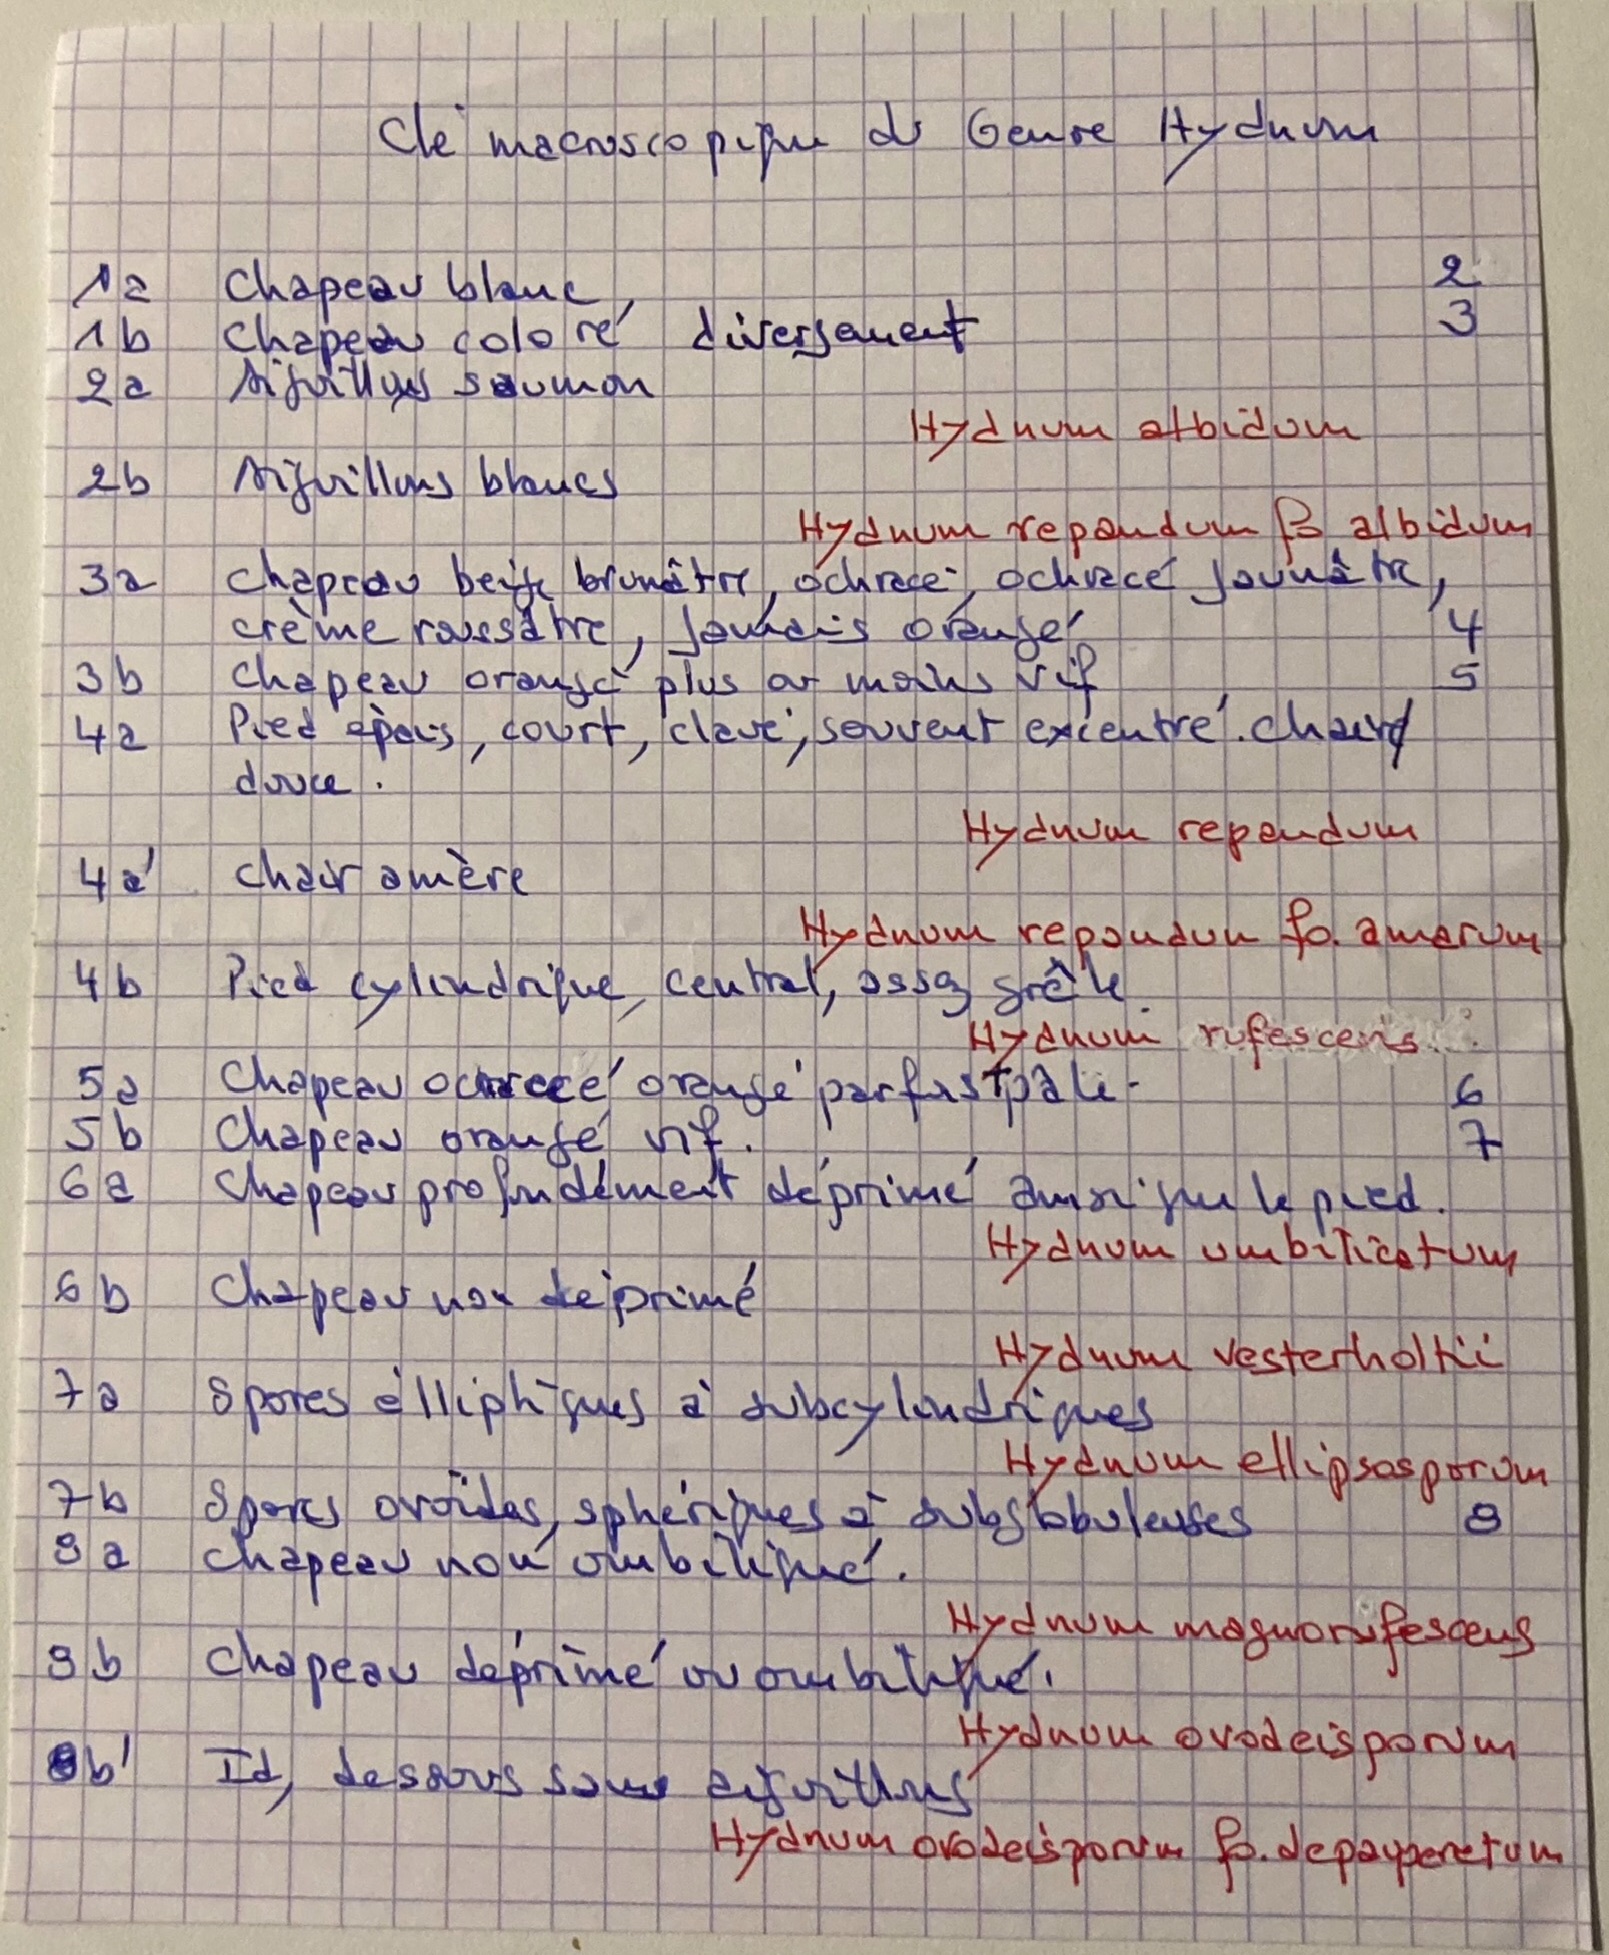 Clé macroscopique du Genre Hydnum
1a Chapeau blanc 2
1b Chapeau coloré diversement 3
2a Aiguillons saumon
Hydnum albidum
2b Aiguillons blancs
Hydnum repandum fo albidum
3a Chapeau beige brunâtre, ochracé, ochracé jaunâtre,
crème roussâtre, jamais orangé 4
3b Chapeau orangé plus ou moins vif 5
4a Pied épais, court, clavé, souvent excentré. Chair
douce.
Hydnum repandum
4a' Chair amère
Hydnum repandum fo. amarum
4b Pied cylindrique, central, assez grêle
Hydnum rufescens
5a Chapeau ochracé orangé parfois pâle. 6
5b Chapeau orangé vif. 7
6a Chapeau profondément déprimé ainsi que le pied.
Hydnum umbilicatum
6b Chapeau non déprimé
Hydnum vesterholtii
7a Spores élliptiques à subcylindriques
Hydnum ellipsosporum
7b Spores ovoïdes, sphériques à subglobuleuses 8
8a Chapeau non ombiliqué.
Hydnum magnorufescens
8b Chapeau déprimé ou ombiliqué.
Hydnum ovodeisporum
8b' Id, dessous sans aiguillons
Hydnum ovodeisporum fo.